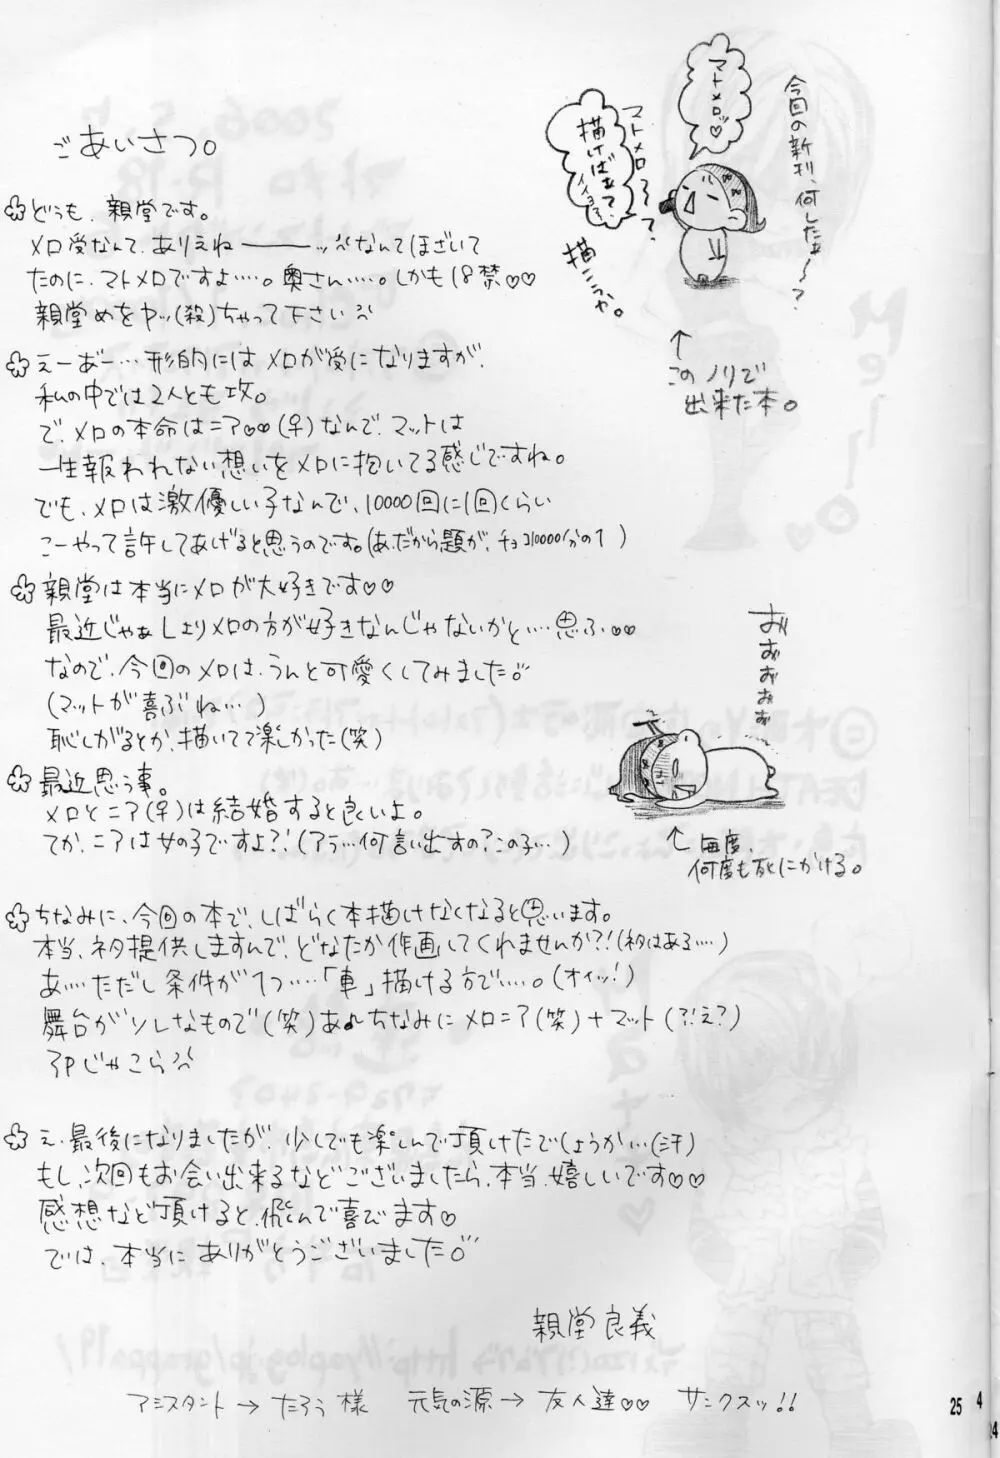 ごあいさつ。
どうも、親堂です。
メロ受なんて、ありえねーーーッなんてほざいて
たのに、マトメロですよ……。奥さん……。しかも18禁♡♡
親堂めをヤッ(殺)ちゃって下さい
えーあー…形的にはメロが受になりますが、
私の中では2人とも攻。
で、メロの本命はニア♡♡(♀)なんで、マットは
一生報われない想いをメロに抱いてる感じですね。
でも、メロは激優しい子なんで、10000回に1回くらい
こーやって許してあげると思うのです。(あ、だから題が、チョコ10000分の1)
親堂は本当にメロが大好きです♡♡
最近じゃぁLよりメロの方が好きなんじゃないかと…思ふ♡♡
なので、今回のメロは、うんと可愛くしてみました
(マットが喜ぶね…)
恥しがるとか、描いてて楽しかった(笑)
最近思う事。
メロとニア(♀)は結婚すると良いよ。
てか、ニアは女の子ですよ?!(アラ…何言い出すの?この子…)
ちなみに、今回の本で、しばらく本描けなくなると思います。
本当、ネタ提供しますんで、どなたか作画してくれませんか?!(ネタはある…)
あ……ただし条件が1つ……「車」描ける方で……。(オイッ!)
舞台がソレなもので(笑)あ♪ちなみにメロニア(笑)+マット(?!え?)
3Pじゃこら
え、最後になりましたが、少しでも楽しんで頂けたでしょうか…(汗)
もし、次回もお会い出来るなどございましたら、本当、嬉しいです♡♡
感想など頂けると、飛んで喜びます♡
では、本当にありがとうございました
親堂良義
アシスタント→たろう様 元気の源→友人達♡♡ サンクスッ!!
今回の新刊、何したぁ〜?
マトメロッ♡
マトメロ〜?
描けばぁて、
イイヨネ
描こうか。
↑
このノリで
出来た本。
おおおおお
↑毎度、
何度も死にかける。
25
4